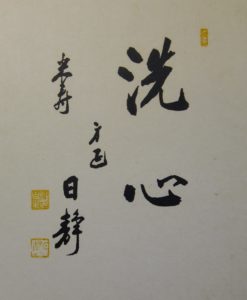 洗心
米寿
日静